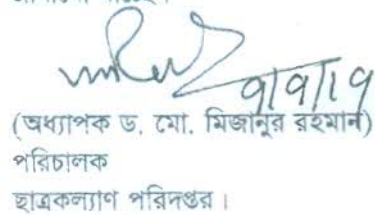 ৭/৭/১৭
(অধ্যাপক ড. মো. মিজানুর রহমান)
পরিচালক
ছাত্রকল্যাণ পরিদপ্তর।